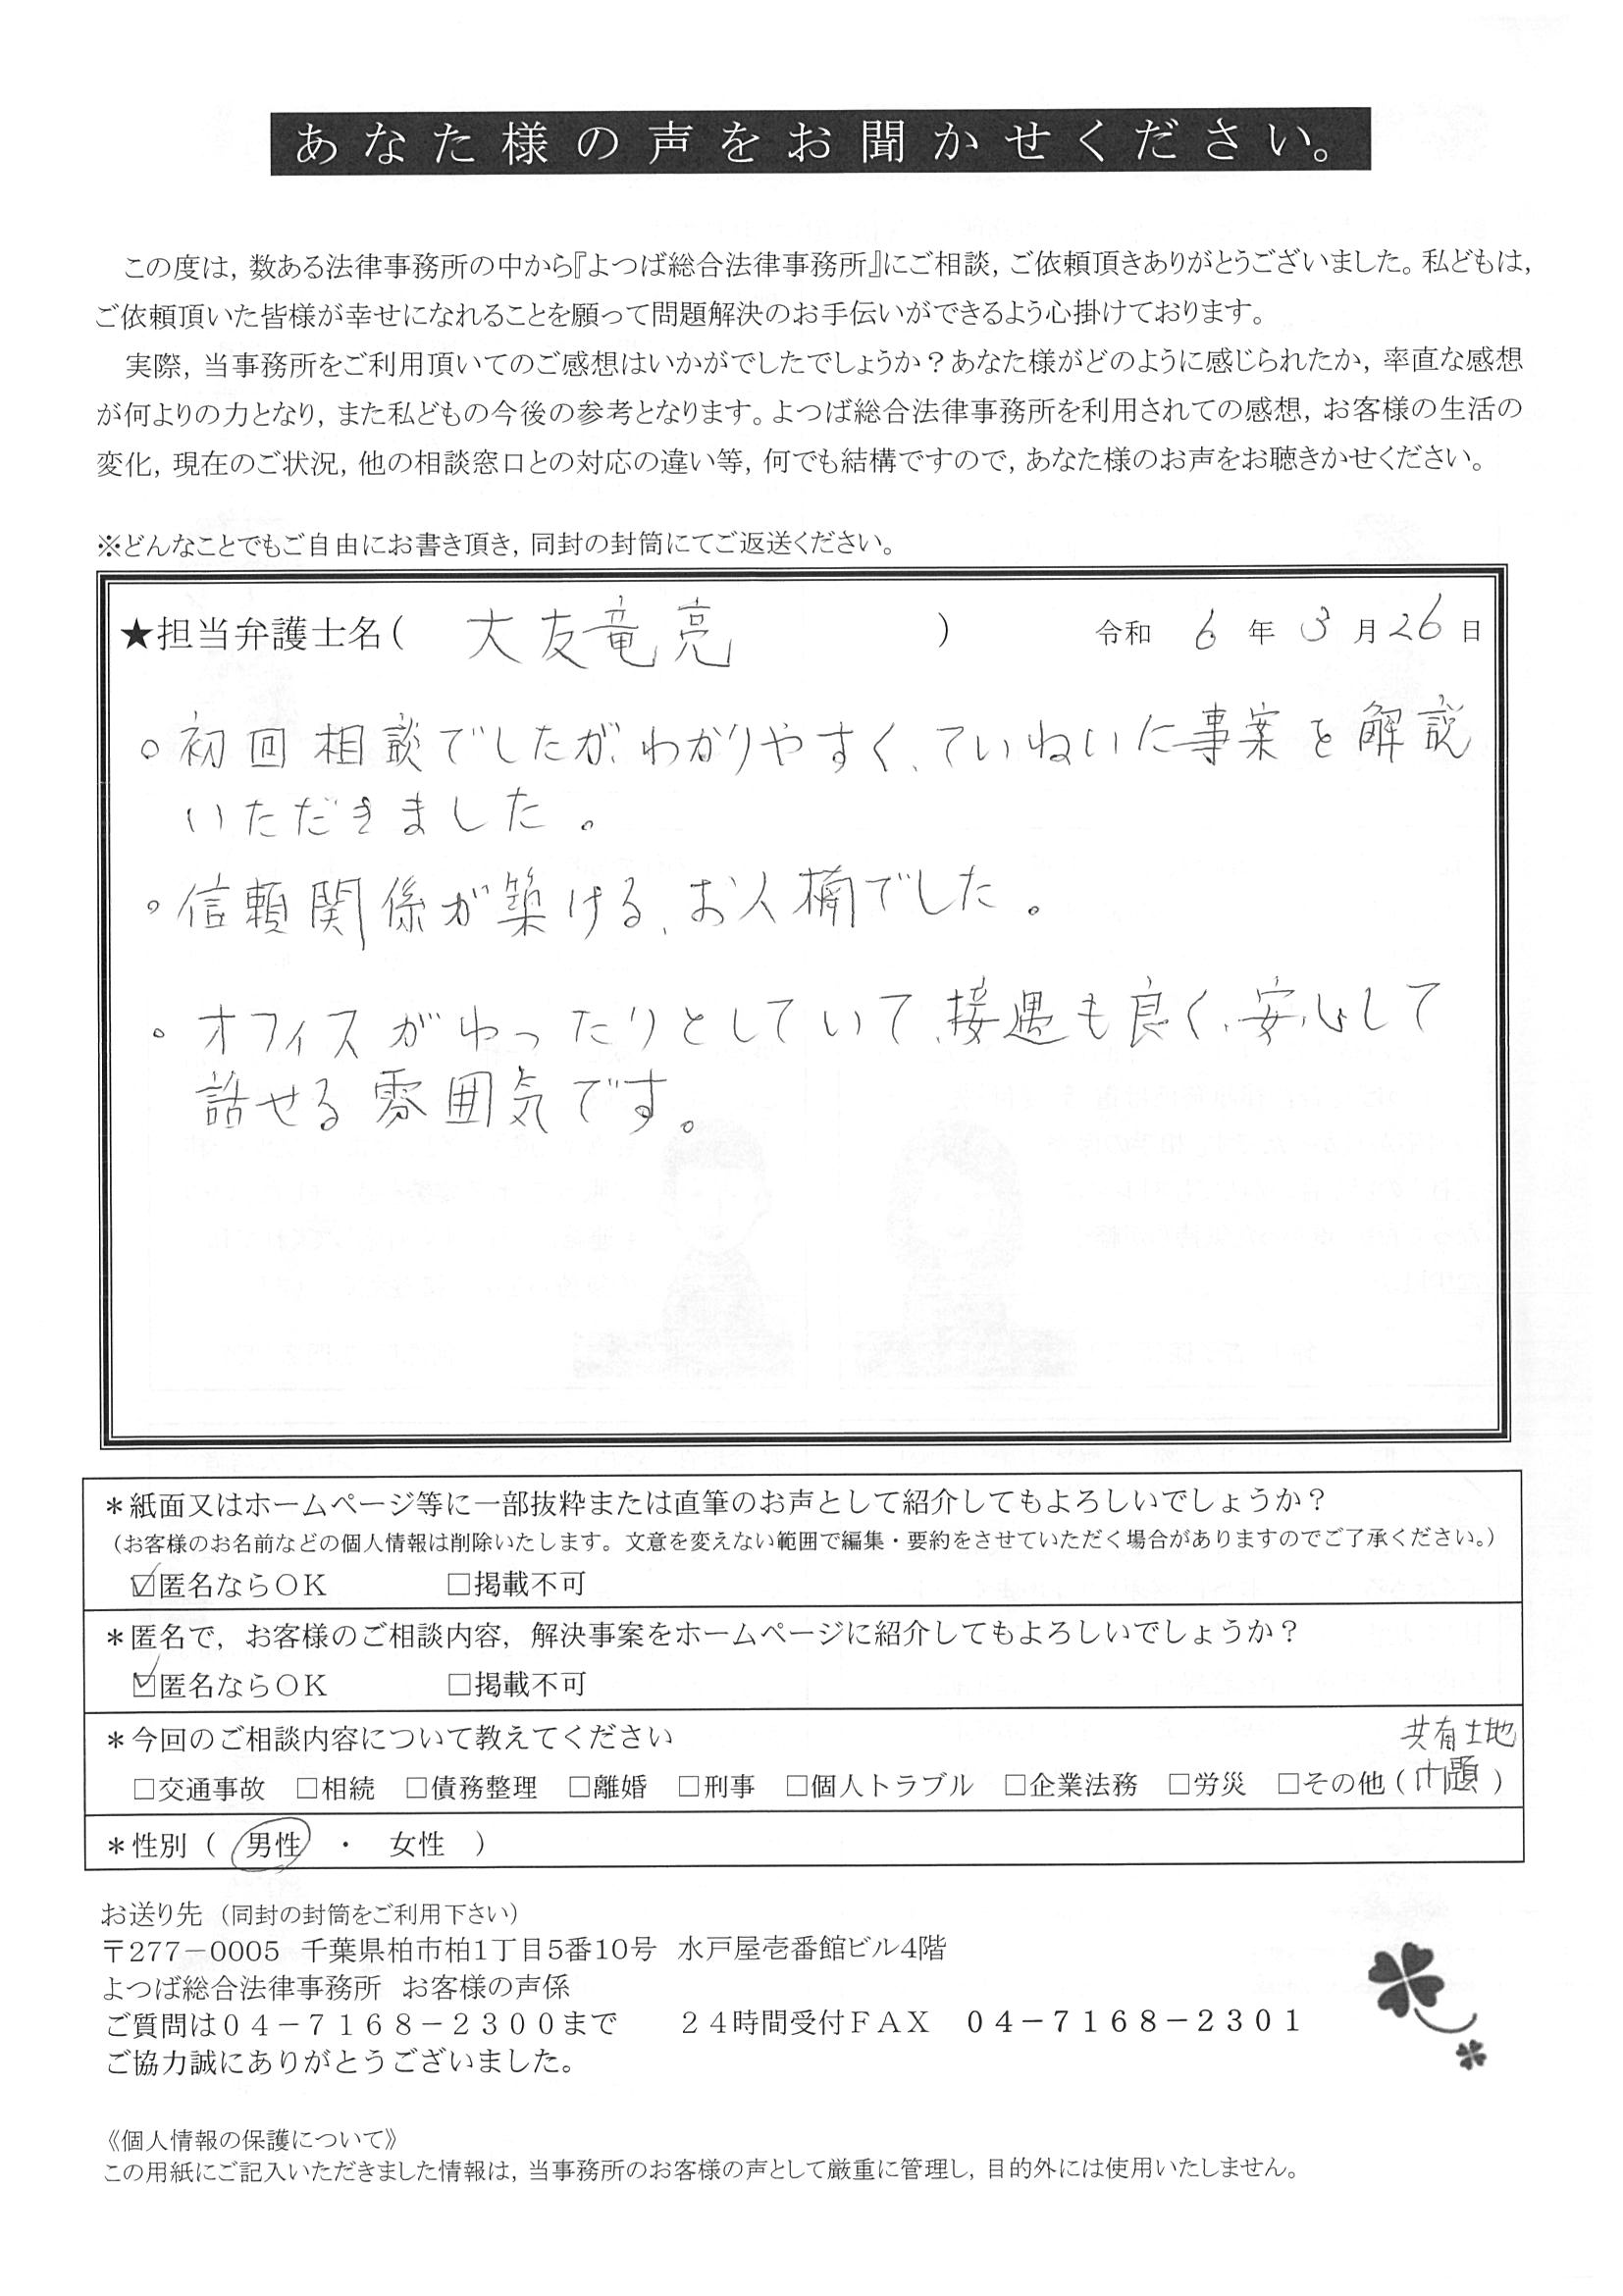 あなた様の声をお聞かせください。
この度は，数ある法律事務所の中から『よつば総合法律事務所』にご相談，ご依頼頂きありがとうございました。私どもは，
ご依頼頂いた皆様が幸せになれることを願って問題解決のお手伝いができるよう心掛けております。
実際，当事務所をご利用頂いてのご感想はいかがでしたでしょうか？あなた様がどのように感じられたか，率直な感想
が何よりの力となり，また私どもの今後の参考となります。よつば総合法律事務所を利用されての感想，お客様の生活の
変化，現在のご状況，他の相談窓口との対応の違い等，何でも結構ですので，あなた様のお声をお聴きかせください。
※どんなことでもご自由にお書き頂き，同封の封筒にてご返送ください。
★担当弁護士名（ 大友竜亮 ） 令和 6 年 3 月 26 日
○ 初回相談でしたが、わかりやすく、ていねいに事案を解説
いただきました。
○ 信頼関係が築ける、お人柄でした。
○ オフィスがゆったりとしていて、接遇も良く、安心して
話せる雰囲気です。
＊紙面又はホームページ等に一部抜粋または直筆のお声として紹介してもよろしいでしょうか？
（お客様のお名前などの個人情報は削除いたします。文意を変えない範囲で編集・要約をさせていただく場合がありますのでご了承ください。）
☑匿名ならＯＫ □掲載不可
＊匿名で，お客様のご相談内容，解決事案をホームページに紹介してもよろしいでしょうか？
☑匿名ならＯＫ □掲載不可
＊今回のご相談内容について教えてください 共有土地
□交通事故 □相続 □債務整理 □離婚 □刑事 □個人トラブル □企業法務 □労災 □その他（問題）
＊性別（ 男性 ・ 女性 ）
お送り先（同封の封筒をご利用下さい）
〒277－0005 千葉県柏市柏1丁目5番10号 水戸屋壱番館ビル4階
よつば総合法律事務所 お客様の声係
ご質問は０４－７１６８－２３００まで ２４時間受付ＦＡＸ ０４－７１６８－２３０１
ご協力誠にありがとうございました。
《個人情報の保護について》
この用紙にご記入いただきました情報は，当事務所のお客様の声として厳重に管理し，目的外には使用いたしません。